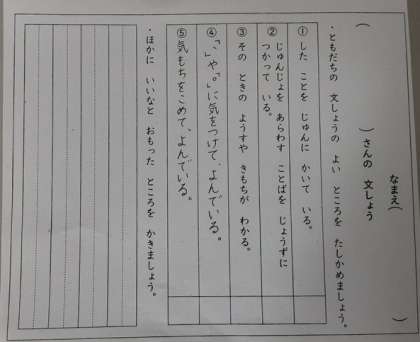 なまえ(　　　　)
(　　　　)さんの　文しょう
・ともだちの　文しょうの　よい　ところを　たしかめましょう。
①した　ことを　じゅんに　かいて　いる。
②じゅんじょを　あらわす　ことばを　じょうずに
つかって　いる。
③その　ときの　ようすや　きもちが　わかる。
④「、」や「。」に気をつけて、よんでいる。
⑤気もちをこめて、よんでいる。
・ほかに　いいなと　おもった　ところを　かきましょう。